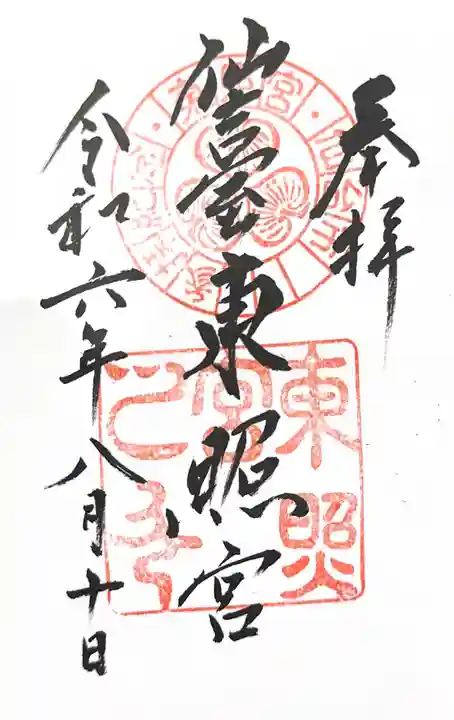 奉拝
仙臺東照宮
令和六年八月十日
東照
宮之印